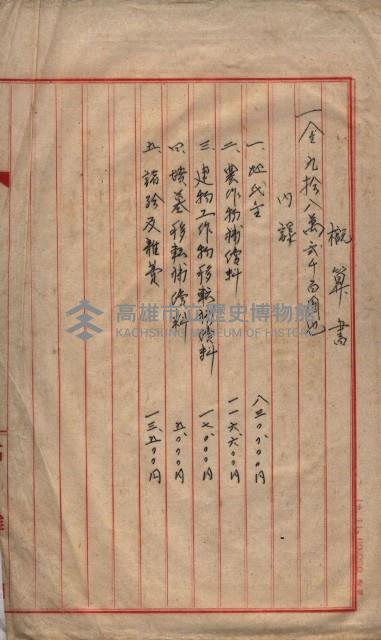 概算書
一金九拾八萬六千百円也
内譯
一、地代金 八三〇、〇〇〇円
二、農作物補償料 一一六、六〇〇円
三、建物工作物移転補償料
四、墳墓移転補償料 五、〇〇〇円
五、諸給及雜費 一三、五〇〇円
高雄市立歷史博物館
KAOHSIUNG MUSEUM OF HISTORY